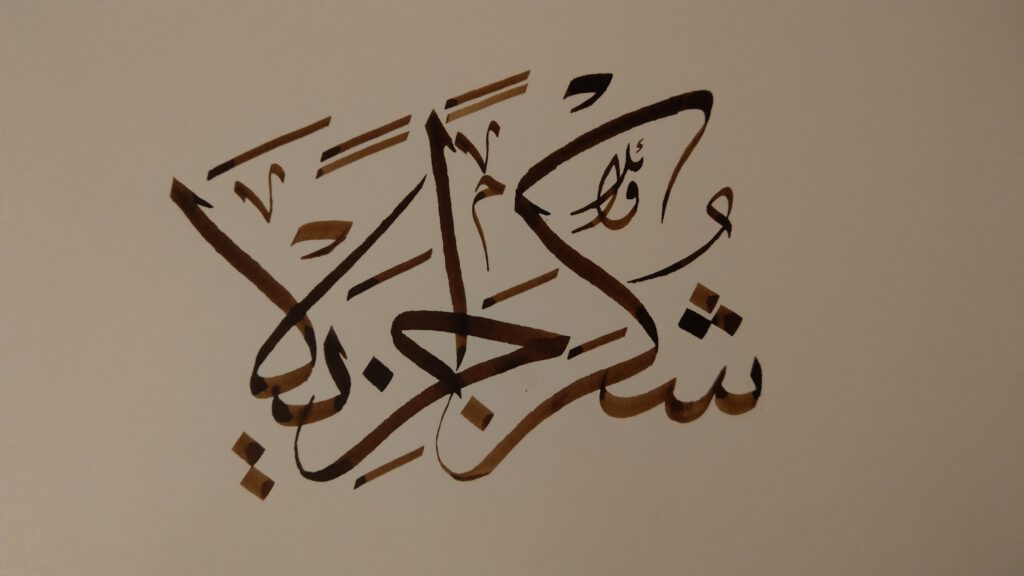 شُكْرًا جَزِيلًا